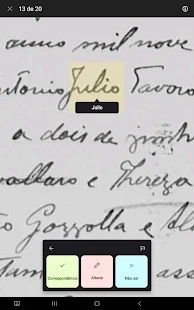 13 de 20
anno mil nove
Antonio Julio Tavora
Julio
a dois de junho
vallaro e Thereza
Gozzolla e
Correspondência
Alterar
Não sei